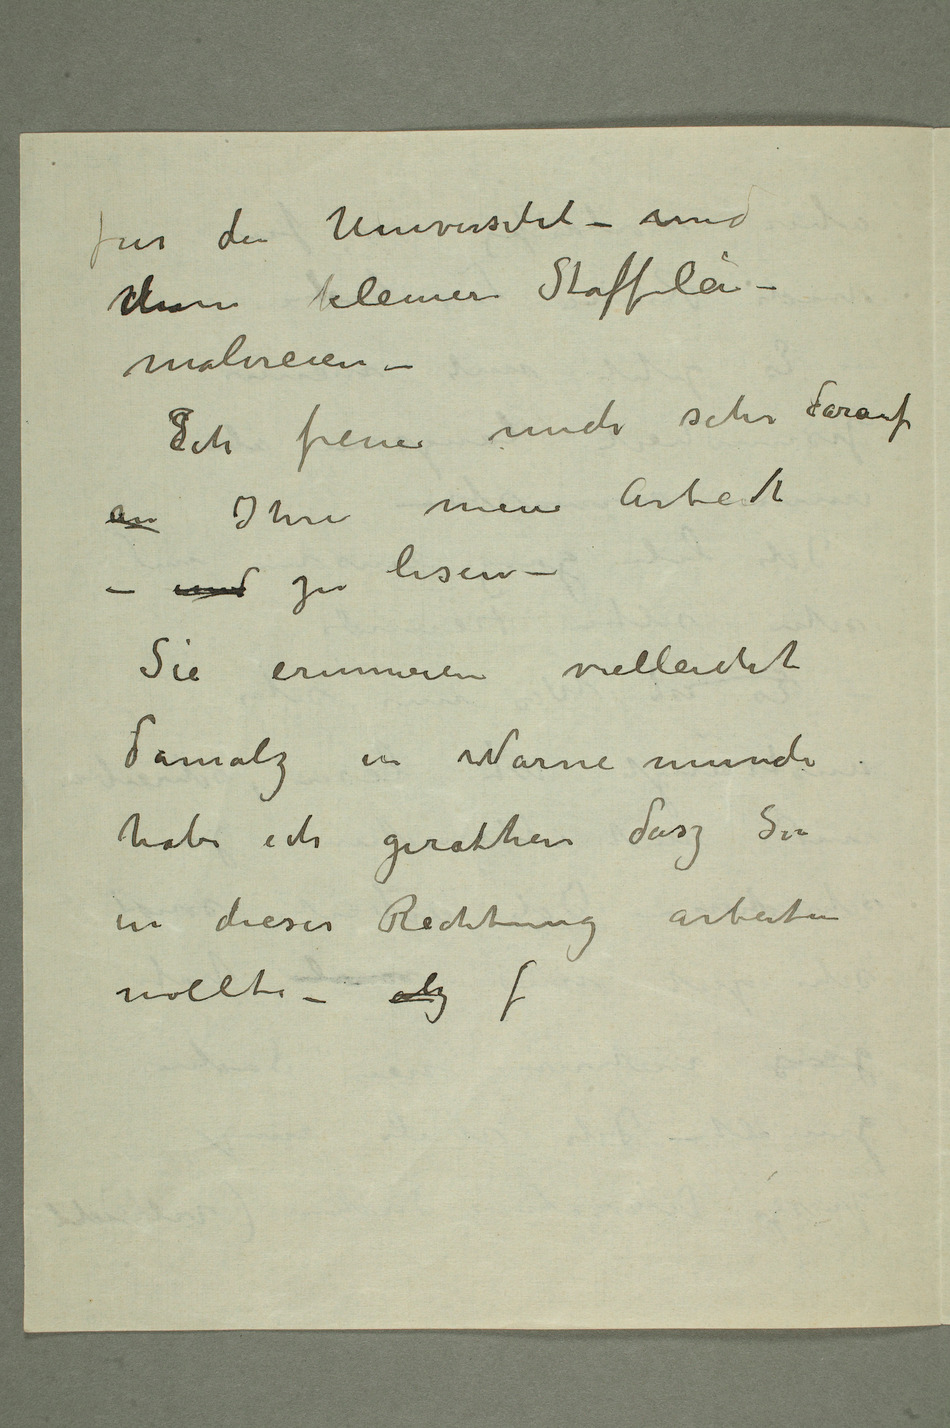 für die Universitet – und
dann kleinere Staffelei-
malereien –
Ich freue mich sehr darauf
an Ihre neue Arbeit
– und zu lesen –
Sie erinneren vielleicht
damalz in Warnemünde
habe ich gerathen dasz Sie
in dieser Richtung arbeiten
sollte – alz f